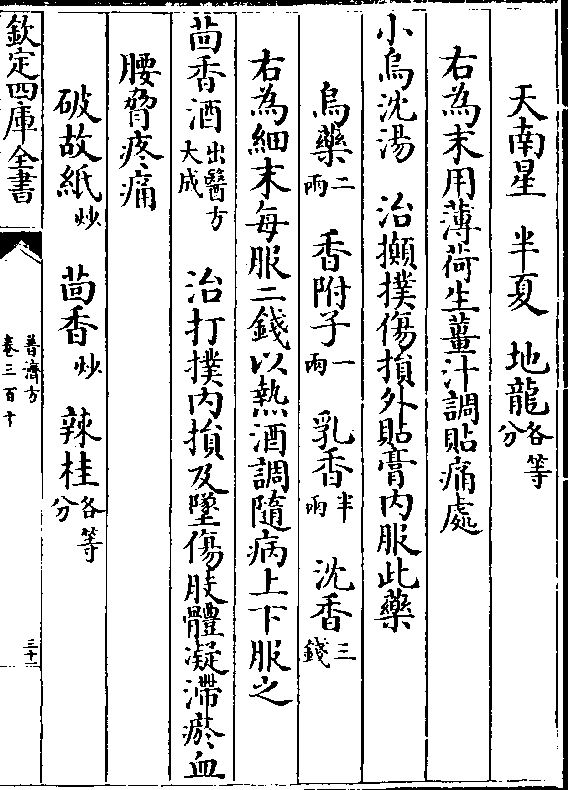 天南星　半夏　地龍各等分
右為末用薄荷生薑汁調貼痛處
小烏沈湯　治攧撲傷損外貼膏内服此藥
烏藥二兩　香附子一兩　乳香半兩　沈香三錢
右為細末每服二錢以熱酒調隨病上下服之
茴香酒出醫方大成　治打撲内損及墜傷肢體凝滯瘀血
腰脅疼痛
破故紙炒　茴香炒　辣桂各等分
欽定四庫全書
普濟方
卷三百十
三十一